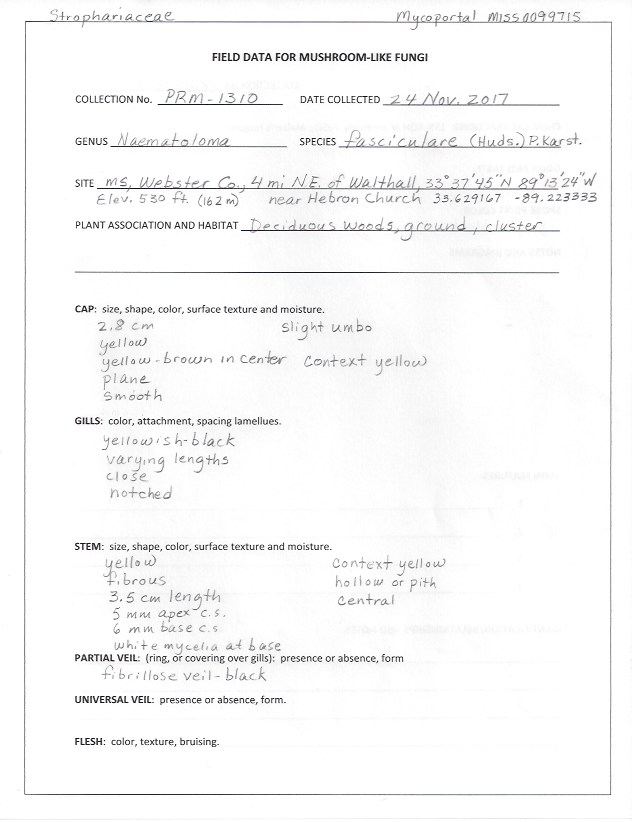 Strophariaceae Mycoportal MISS0099715
FIELD DATA FOR MUSHROOM-LIKE FUNGI
COLLECTION No. PRM-1310 DATE COLLECTED 24 Nov. 2017
GENUS Naematoloma SPECIES fasciculare (Huds.) P.Karst.
SITE MS, Webster Co., 4 mi NE. of Walthall, 33°37'45"N 89°13'24"W
Elev. 530 ft. (162 m) near Hebron Church 33.629167 -89.223333
PLANT ASSOCIATION AND HABITAT Deciduous woods, ground, cluster
CAP: size, shape, color, surface texture and moisture.
2.8 cm slight umbo
yellow
yellow-brown in center context yellow
plane
smooth
GILLS: color, attachment, spacing lamellues.
yellowish-black
varying lengths
close
notched
STEM: size, shape, color, surface texture and moisture.
yellow context yellow
fibrous hollow or pith
3.5 cm length central
5 mm apex c.s.
6 mm base c.s.
white mycelia at base
PARTIAL VEIL: (ring, or covering over gills): presence or absence, form
fibrillose veil-black
UNIVERSAL VEIL: presence or absence, form.
FLESH: color, texture, bruising.